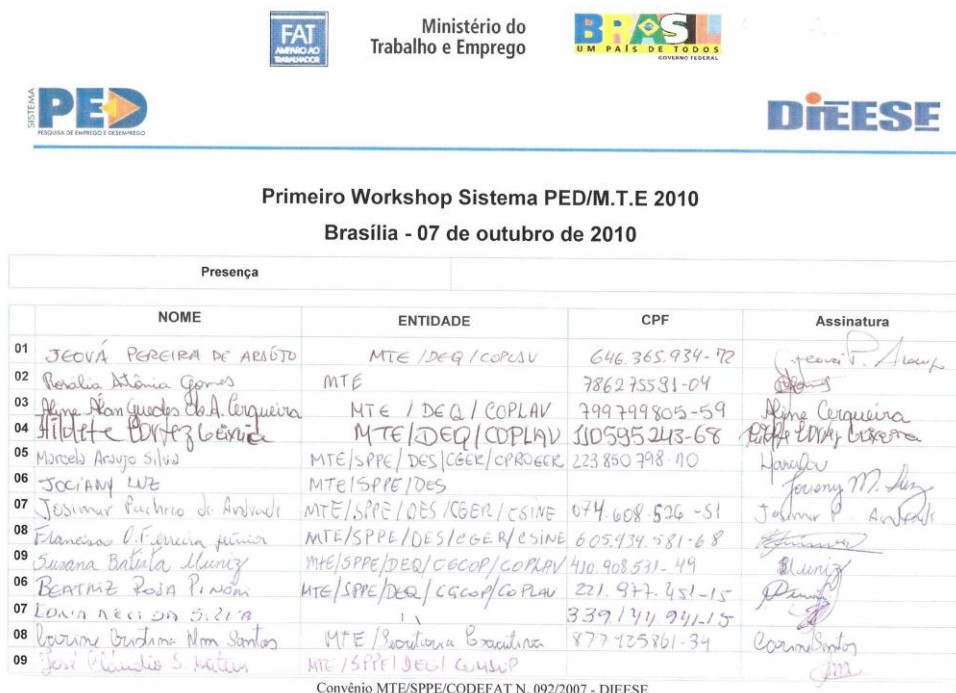 FAT
AMPARO AO
TRABALHADOR
Ministério do
Trabalho e Emprego
BRASIL
UM PAÍS DE TODOS
GOVERNO FEDERAL
SISTEMA
PED
PESQUISA DE EMPREGO E DESEMPREGO
DIEESE
Primeiro Workshop Sistema PED/M.T.E 2010
Brasília - 07 de outubro de 2010
Presença
NOME ENTIDADE CPF Assinatura
01 JEOVÁ PEREIRA DE ARAÚJO MTE/DEQ/COPLAV 646.365.934-72 Jeová P. Araujo
02 Rosalia Antônia Gomes MTE 786275591-04
03 Alyne Alan Guedes de A. Cerqueira MTE / DEQ / COPLAV 799799805-59 Alyne Cerqueira
04 MTE/DEQ/COPLAV 110595243-68
05 Marcelo Araujo Silva MTE/SPPE/DES/CGER/CPROGER 223850798-10
06 JOCIANY LUZ MTE/SPPE/DES Jociany M. Luz
07 Josimar Pacheco de Andrade MTE/SPPE/DES/CGER/CSINE 074.608.526-51 Josimar P. Andrade
08 Francisco O. Ferreira júnior MTE/SPPE/DES/CGER/CSINE 605.934.581-68
09 Susana Batista Muniz MTE/SPPE/DEQ/CGCOP/COPLAV 410.908.531-49 Muniz
06 BEATRIZ ROSA MTE/SPPE/DEQ/CGCOP/COPLAV 221.977.451-15
07 DA SILVA 11 339144941-15
08 Corine Cristina Santos MTE / Secretaria Executiva 877425861-34 Corine Santos
09 José Cláudio S. MTE/SPPE/DEQ/
Convênio MTE/SPPE/CODEFAT N. 092/2007 - DIEESE